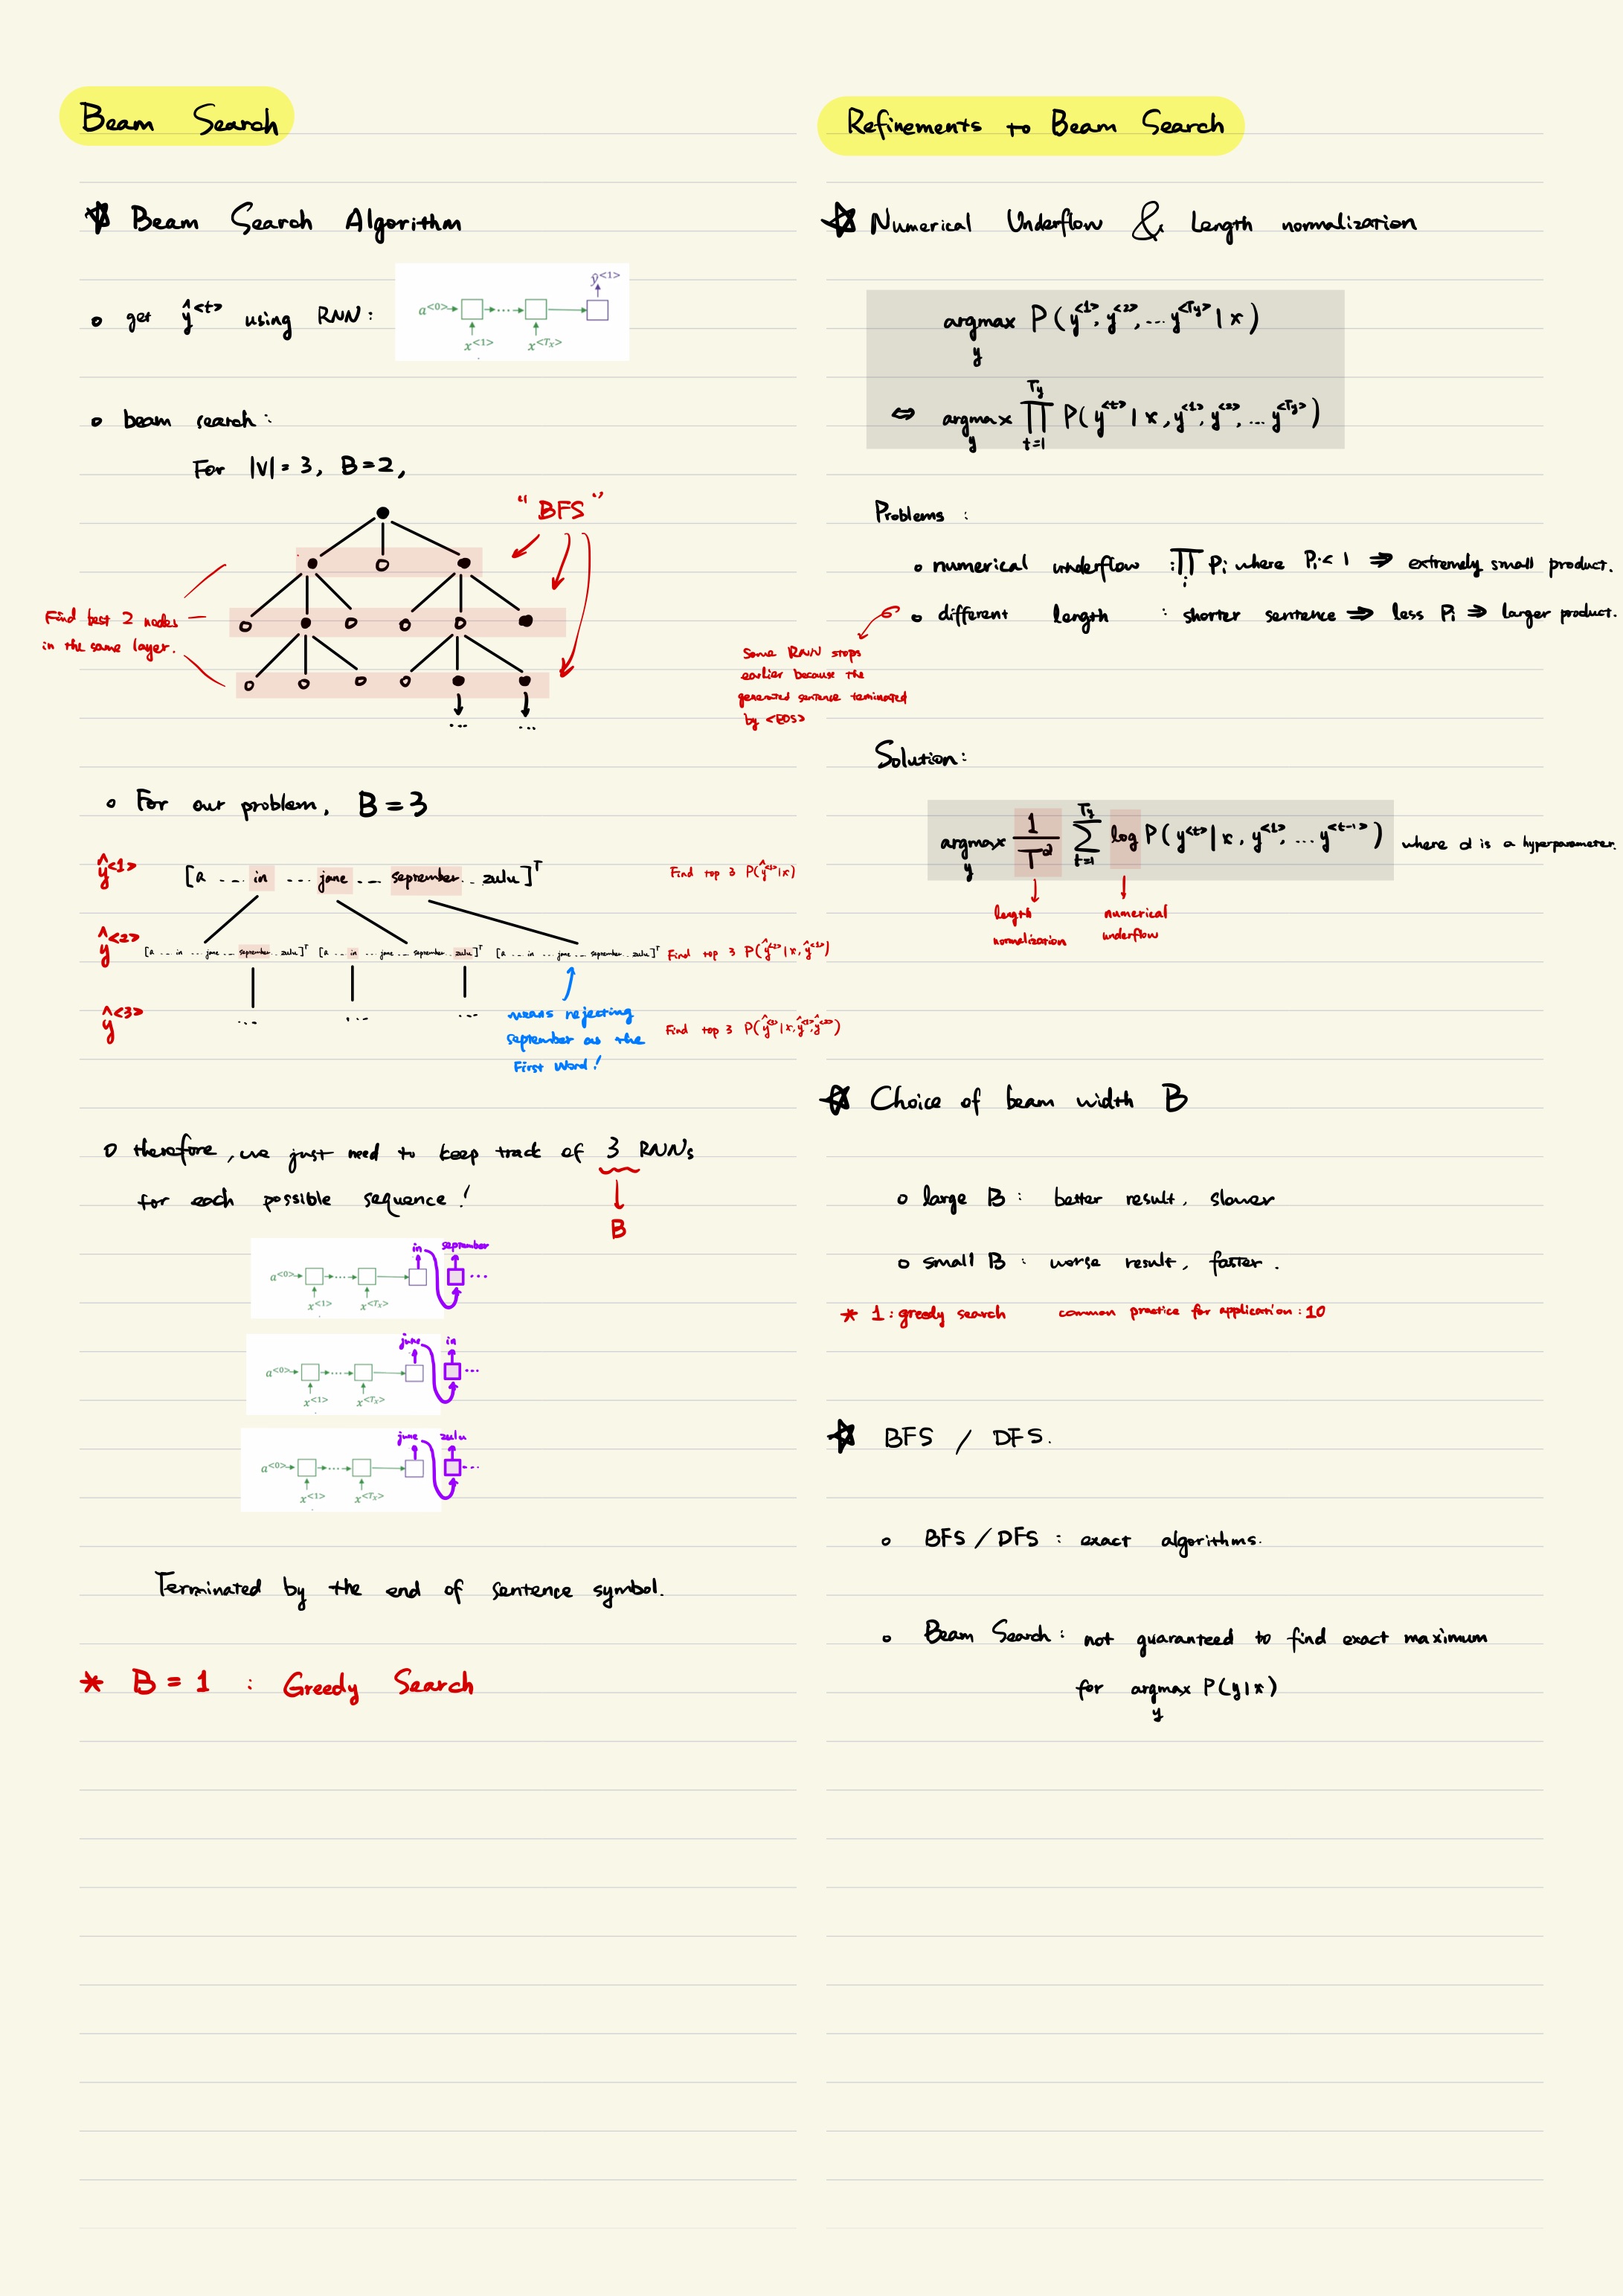 Beam Search
☆ Beam Search Algorithm
o get ŷ^<t> using RNN:
ŷ^<1>
a^<0>
x^<1> x^<Tx>
o beam search:
For |V| = 3, B=2,
"BFS"
Find best 2 nodes
in the same layer.
...
...
o For our problem, B=3
ŷ^<1> [a ... in ... jane ... september .. zulu]^T Find top 3 P(ŷ^<1>|x)
ŷ^<2> [a ... in ... jane ... september.. zulu]^T [a ... in ... jane ... september.. zulu]^T [a ... in ... jane ... september.. zulu]^T Find top 3 P(ŷ^<2>|x, ŷ^<1>)
ŷ^<3> ... ... ... Find top 3 P(ŷ^<3>|x, ŷ^<1>, ŷ^<2>)
means rejecting
september as the
First Word!
o therefore, we just need to keep track of 3 RNNs
for each possible sequence!
B
in september
a^<0> ...
x^<1> x^<Tx>
jane in
a^<0> ...
x^<1> x^<Tx>
jane zulu
a^<0> ...
x^<1> x^<Tx>
Terminated by the end of sentence symbol.
* B = 1 : Greedy Search
Refinements to Beam Search
☆ Numerical Underflow & Length normalization
argmax_y P(y^<1>, y^<2>, ... y^<Ty> | x)
⇔ argmax_y ∏_{t=1}^{Ty} P(y^<t> | x, y^<1>, y^<2>, ... y^<Ty>)
Problems :
o numerical underflow : ∏_i Pi where Pi < 1 ⇒ extremely small product.
o different length : shorter sentence ⇒ less Pi ⇒ larger product.
Some RNN stops
earlier because the
generated sentence teminated
by <EOS>
Solution:
argmax_y 1/T^α ∑_{t=1}^{Ty} log P(y^<t> | x, y^<1>, ... y^<t-1>) where α is a hyperparameter.
length
normalization
numerical
underflow
☆ Choice of beam width B
o large B : better result, slower
o small B : worse result, faster.
* 1: greedy search common practice for application : 10
☆ BFS / DFS.
o BFS / DFS : exact algorithms.
o Beam Search : not guaranteed to find exact maximum
for argmax_y P(y|x)